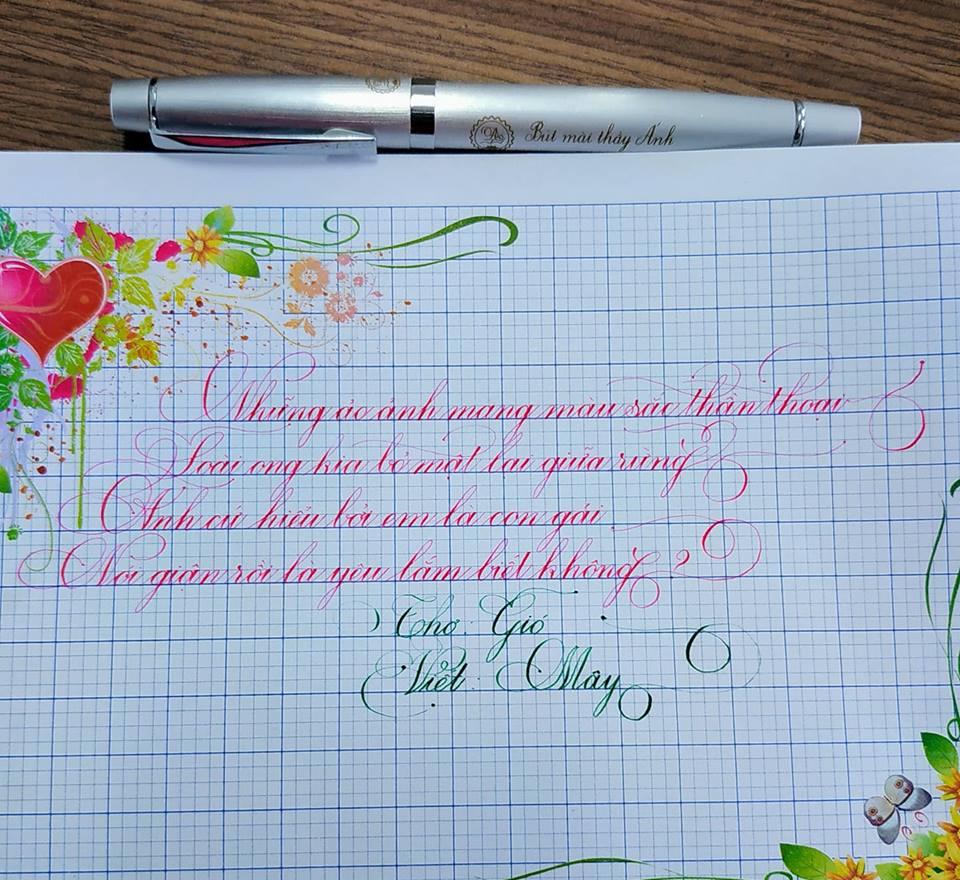 Bút mài thầy Ánh
Những ảo ảnh mang màu sắc thần thoại
Loài ong kia bỏ mật lại giữa rừng
Anh cứ hiểu bởi em là con gái
Nói giận rồi là yêu lắm biết không ?
Thơ: Gió
Viết: Mây